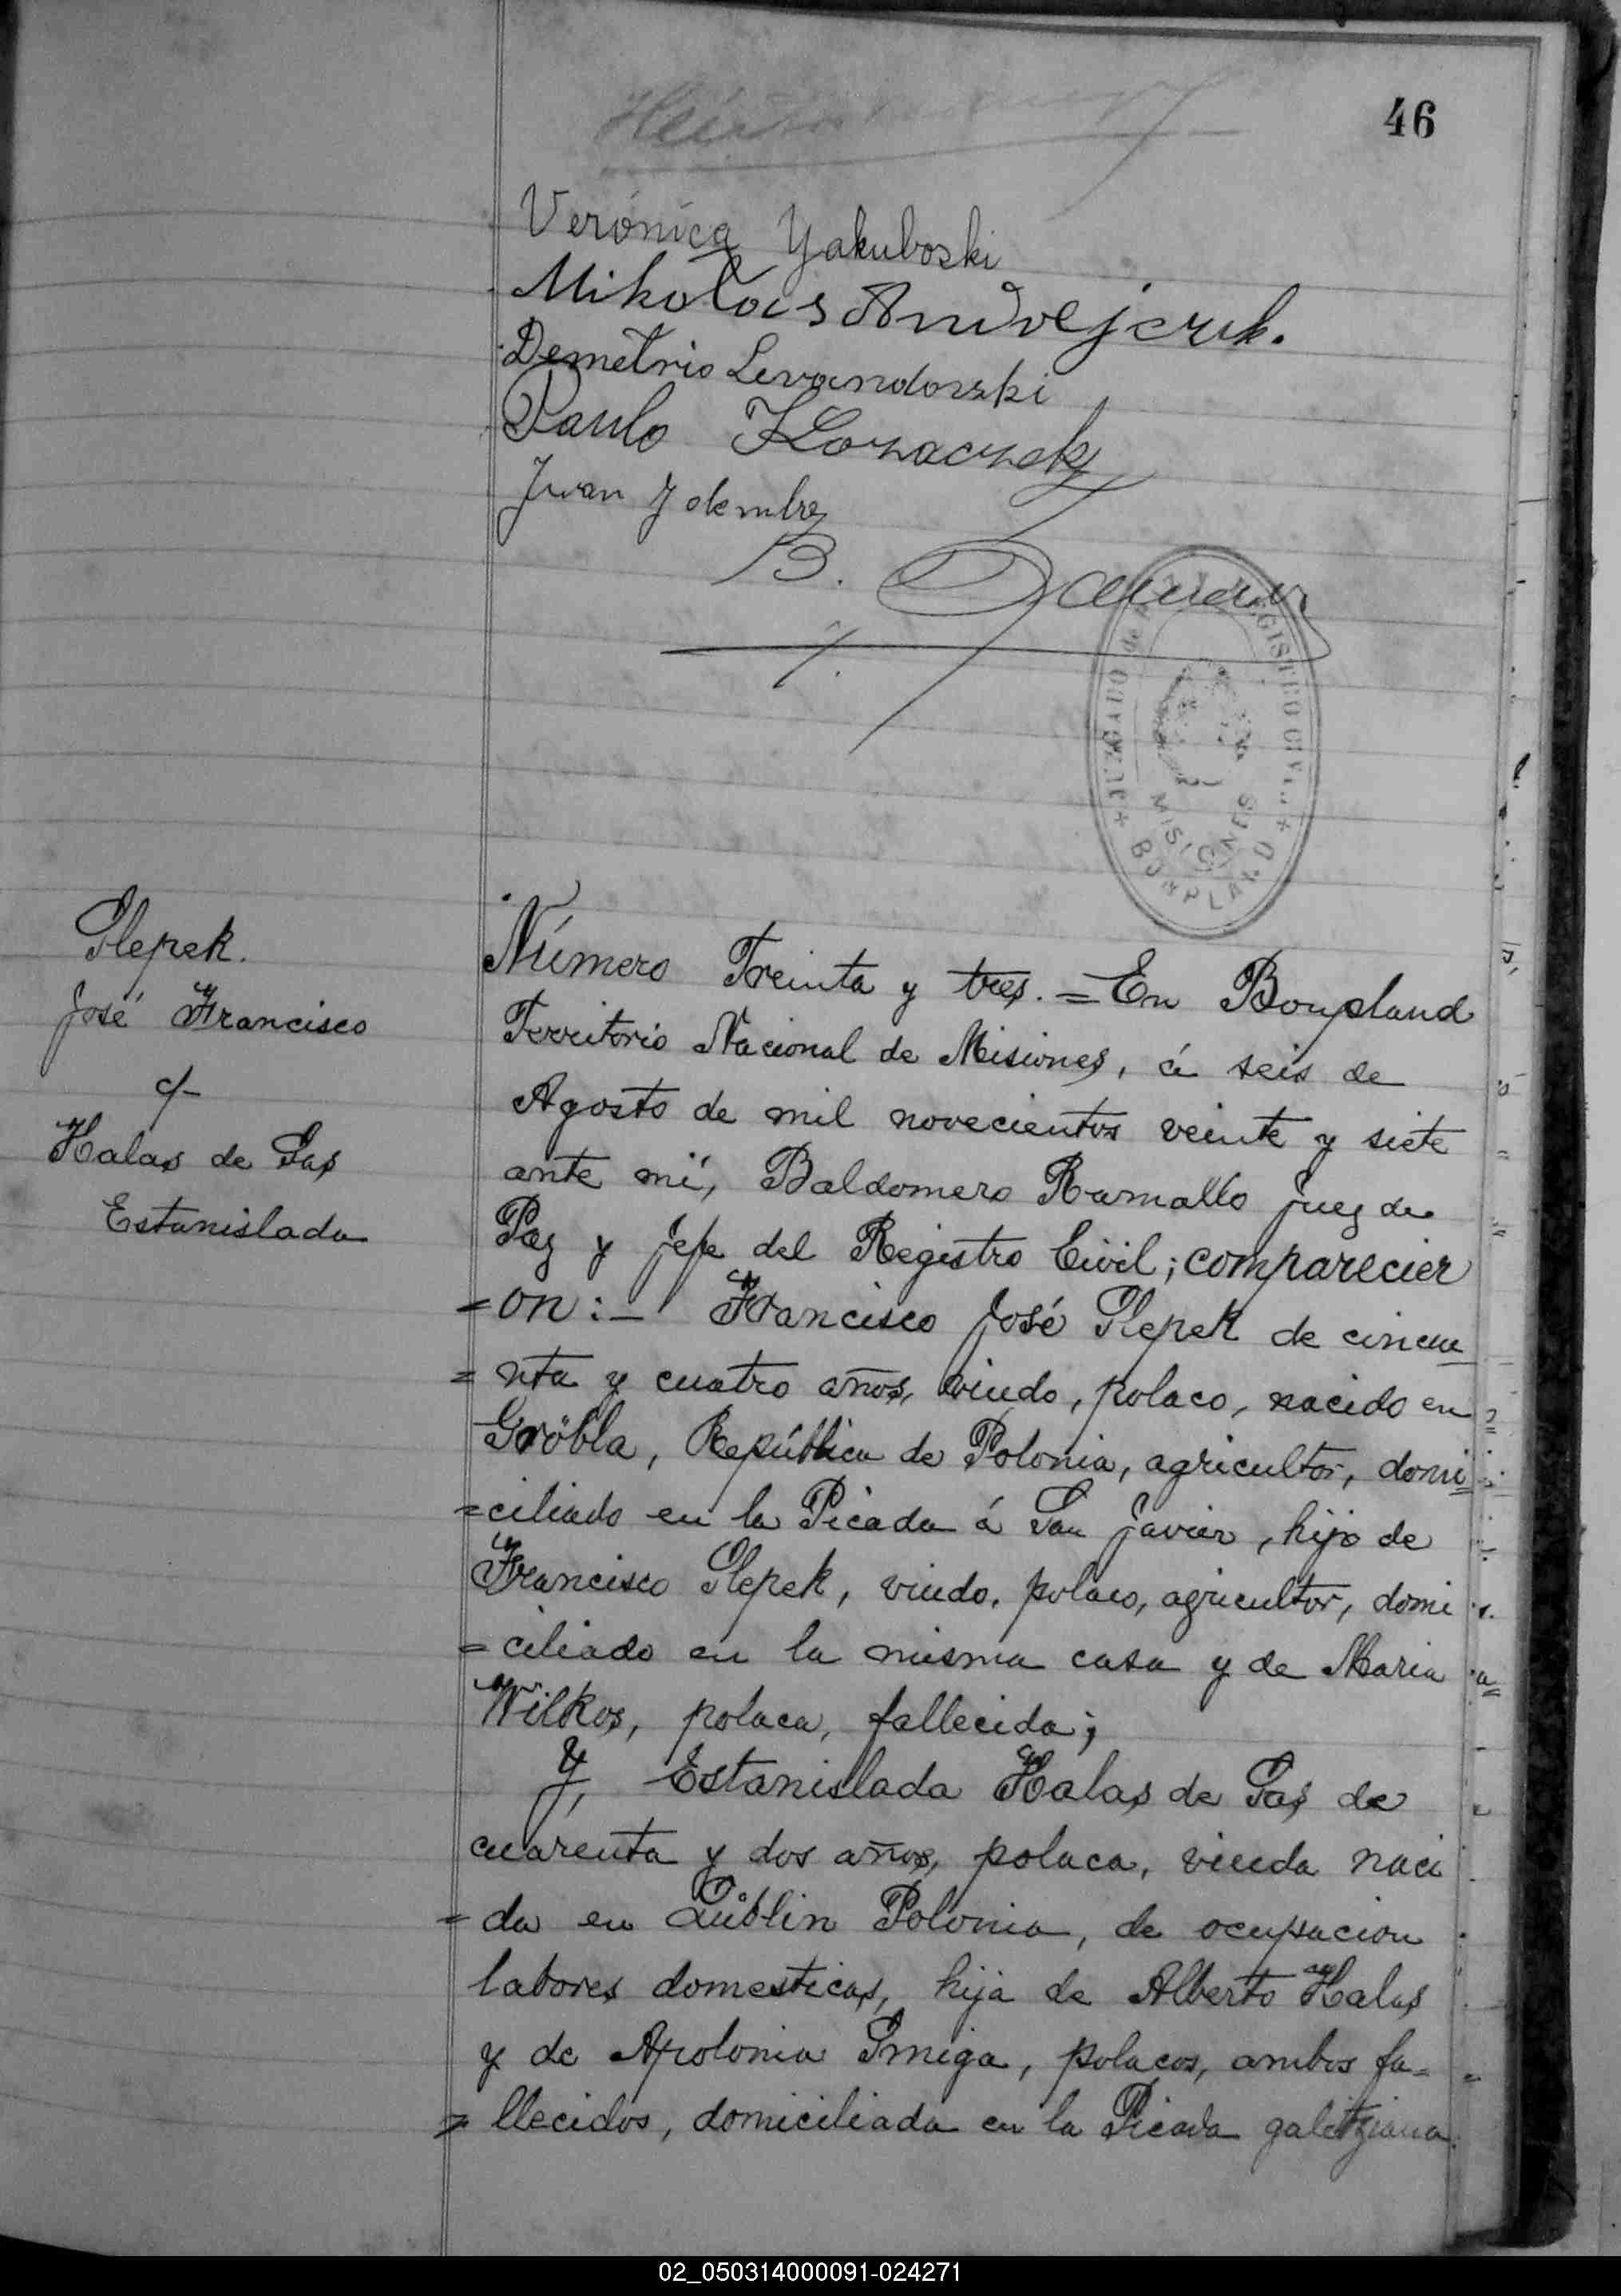 46
Verónica Yakuboski
Demetrio Levandorski
Paulo Kozaczek
Juan
B.
JUZGADO de PAZ Y REGISTRO CIVIL
MISIONES
BONPLAND
Slepek.
José Francisco
c/-
Halas de Sas
Estanislada
Número Treinta y tres. = En Bonpland
Territorio Nacional de Misiones, á seis de
Agosto de mil novecientos veinte y siete
ante mí, Baldomero Ramallo Juez de
Paz y Jefe del Registro Civil; comparecier
= on: - Francisco José Slepek de cincue
= nta y cuatro años, viudo, polaco, nacido en
Gröbla, República de Polonia, agricultor, domi
= ciliado en la Picada á San Javier, hijo de
Francisco Slepek, viudo, polaco, agricultor, domi
= ciliado en la misma casa y de Maria
Wilkos, polaca, fallecida;
Y, Estanislada Halas de Sas de
cuarenta y dos años, polaca, viuda naci
= da en Lüblin Polonia, de ocupacion
labores domesticas, hija de Alberto Halas
y de Apolonia Smiga, polacos, ambos fa-
= llecidos, domiciliada en la Picada galitziana
02_050314000091-024271